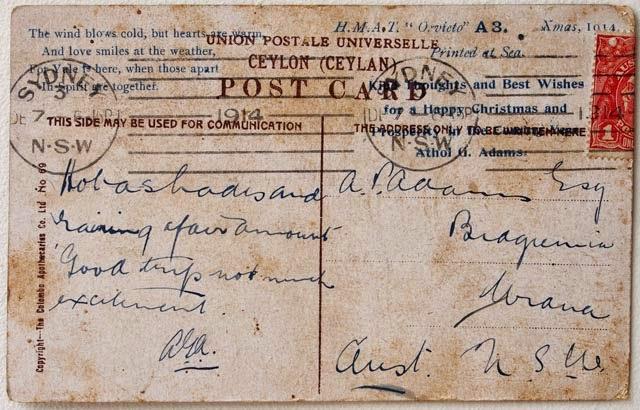 The wind blows cold, but hearts are warm,
And love smiles at the weather,
For Yule is here, when those apart
In Spirit are together.
H.M.A.T. "Orvieto" A3. Xmas, 1914.
Printed at Sea.
UNION POSTALE UNIVERSELLE
CEYLON (CEYLAN)
POST CARD
Kind Thoughts and Best Wishes
for a Happy Christmas and
Athol G. Adams.
SYDNEY
3
DE 7
1914
N·S·W
SYDNEY
DE 7
1914
N·S·W
1
THIS SIDE MAY BE USED FOR COMMUNICATION
THE ADDRESS ONLY TO BE WRITTEN HERE
Copyright—The Colombo Apothecaries Co. Ltd No 69
Hot as hades and
raining a fair amount
Good trip not much
excitement.
AGA.
A. P. Adams Esq
Urana
Aust. N S W.